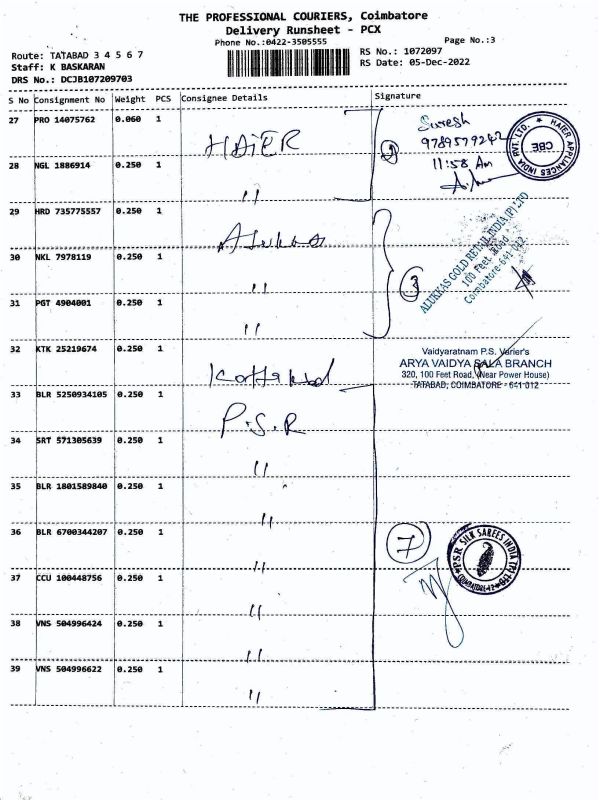 THE PROFESSIONAL COURIERS, Coimbatore
Delivery Runsheet - PCX
Phone No.:0422-3505555
Page No.:3
Route: TATABAD 3 4 5 6 7
Staff: K BASKARAN
DRS No.: DCJB107209703
RS No.: 1072097
RS Date: 05-Dec-2022
S No Consignment No Weight PCS Consignee Details Signature
27 PRO 14075762 0.060 1 HAiER
Suresh
9789579242
11:58 Am
HAIER APPLIANCES INDIA PVT. LTD. ★ CBE
2
28 NGL 1886914 0.250 1 "
29 HRD 735775557 0.250 1 Alukkas
ALUKKAS GOLD RETAIL INDIA (P) LTD
100 Feet Road
Coimbatore-641 012
3
30 NKL 7978119 0.250 1 "
31 PGT 4904001 0.250 1 "
32 KTK 25219674 0.250 1 Kottakkal
Vaidyaratnam P.S. Varier's
ARYA VAIDYA SALA BRANCH
320, 100 Feet Road, (Near Power House)
TATABAD, COIMBATORE - 641 012
33 BLR 5250934105 0.250 1 P.S.R
34 SRT 571305639 0.250 1 "
35 BLR 1801589840 0.250 1 "
36 BLR 6700344207 0.250 1 "
7
PSR SILK SAREES INDIA (P) LTD
COIMBATORE-12
37 CCU 100448756 0.250 1 "
38 VNS 504996424 0.250 1 "
39 VNS 504996622 0.250 1 "